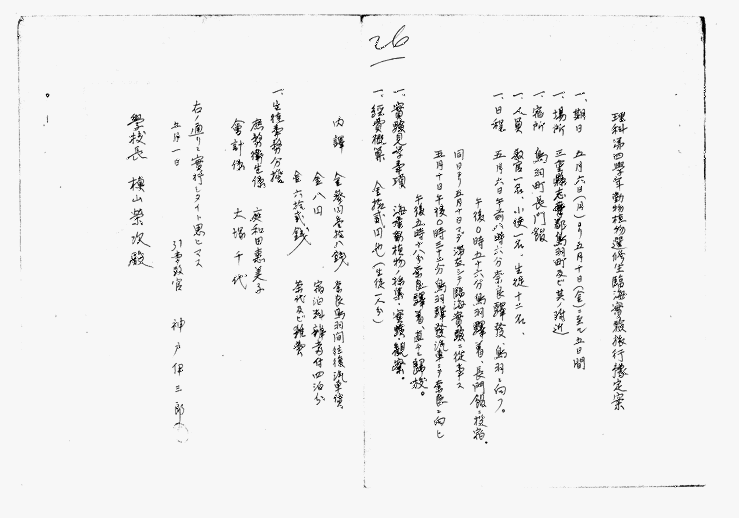 26
理科第四學年動物植物選修生臨海實驗旅行豫定案
一、期日 五月六日(月)ヨリ五月十日(金)ニ至ル五日間
一、場所 三重縣志摩郡鳥羽町及ビ其ノ附近
一、宿所 鳥羽町長門館
一、人員 教官一名、小使一名、生徒十二名、
一、日程 五月六日午前八時六分奈良驛發、鳥羽ニ向フ。
午後0時五十六分鳥羽驛着、長門館ニ投宿。
同日ヨリ五月十日マデ滞在シテ臨海實驗ニ從事ス
五月十日午後0時三十三分鳥羽驛發汽車ニテ奈良ニ向ヒ
午後五時十八分奈良驛着、直チニ歸校。
一、實驗見學事項 海産動植物ノ採集、實驗、觀察。
一、經費概算 金拾貳円也(生徒一人分)
内譯 金參円參拾八錢 奈良鳥羽間往復汽車賃
金八円 宿泊料辨當付四泊分
金六拾貳錢 茶代及ビ雜費
一、生徒事務分擔
庶務衛生係 庭和田惠美子
會計係 大塚千代
右ノ通リニ實行シタイト思ヒマス
五月一日 引率教官 神戸伊三郎
學校長 槇山榮次殿